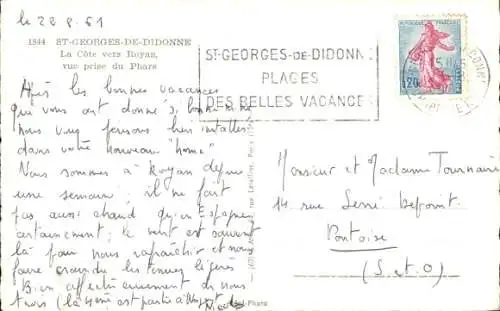 le 28.8.61
1844 ST-GEORGES-DE-DIDONNE
La Côte vers Royan,
vue prise du Phare
ST-GEORGES-DE-DIDONNE
PLAGES
DES BELLES VACANCES
RÉPUBLIQUE FRANÇAISE
0,20
POSTES
Après les bonnes vacances
que vous ont donné
nous vous pensons bien installés
dans votre nouveau "home"
Nous sommes à Royan depuis
une semaine; il ne fait
pas aussi chaud qu'en Espagne
certainement; le vent est souvent
là pour nous rafraîchir et nous
faire les tenues légères
Bien affectueusement de nous
trois (la 4ème est partie
Monsieur et Madame Tournaire
14 rue Serré
Pontoise
(S.et.O)
Phare